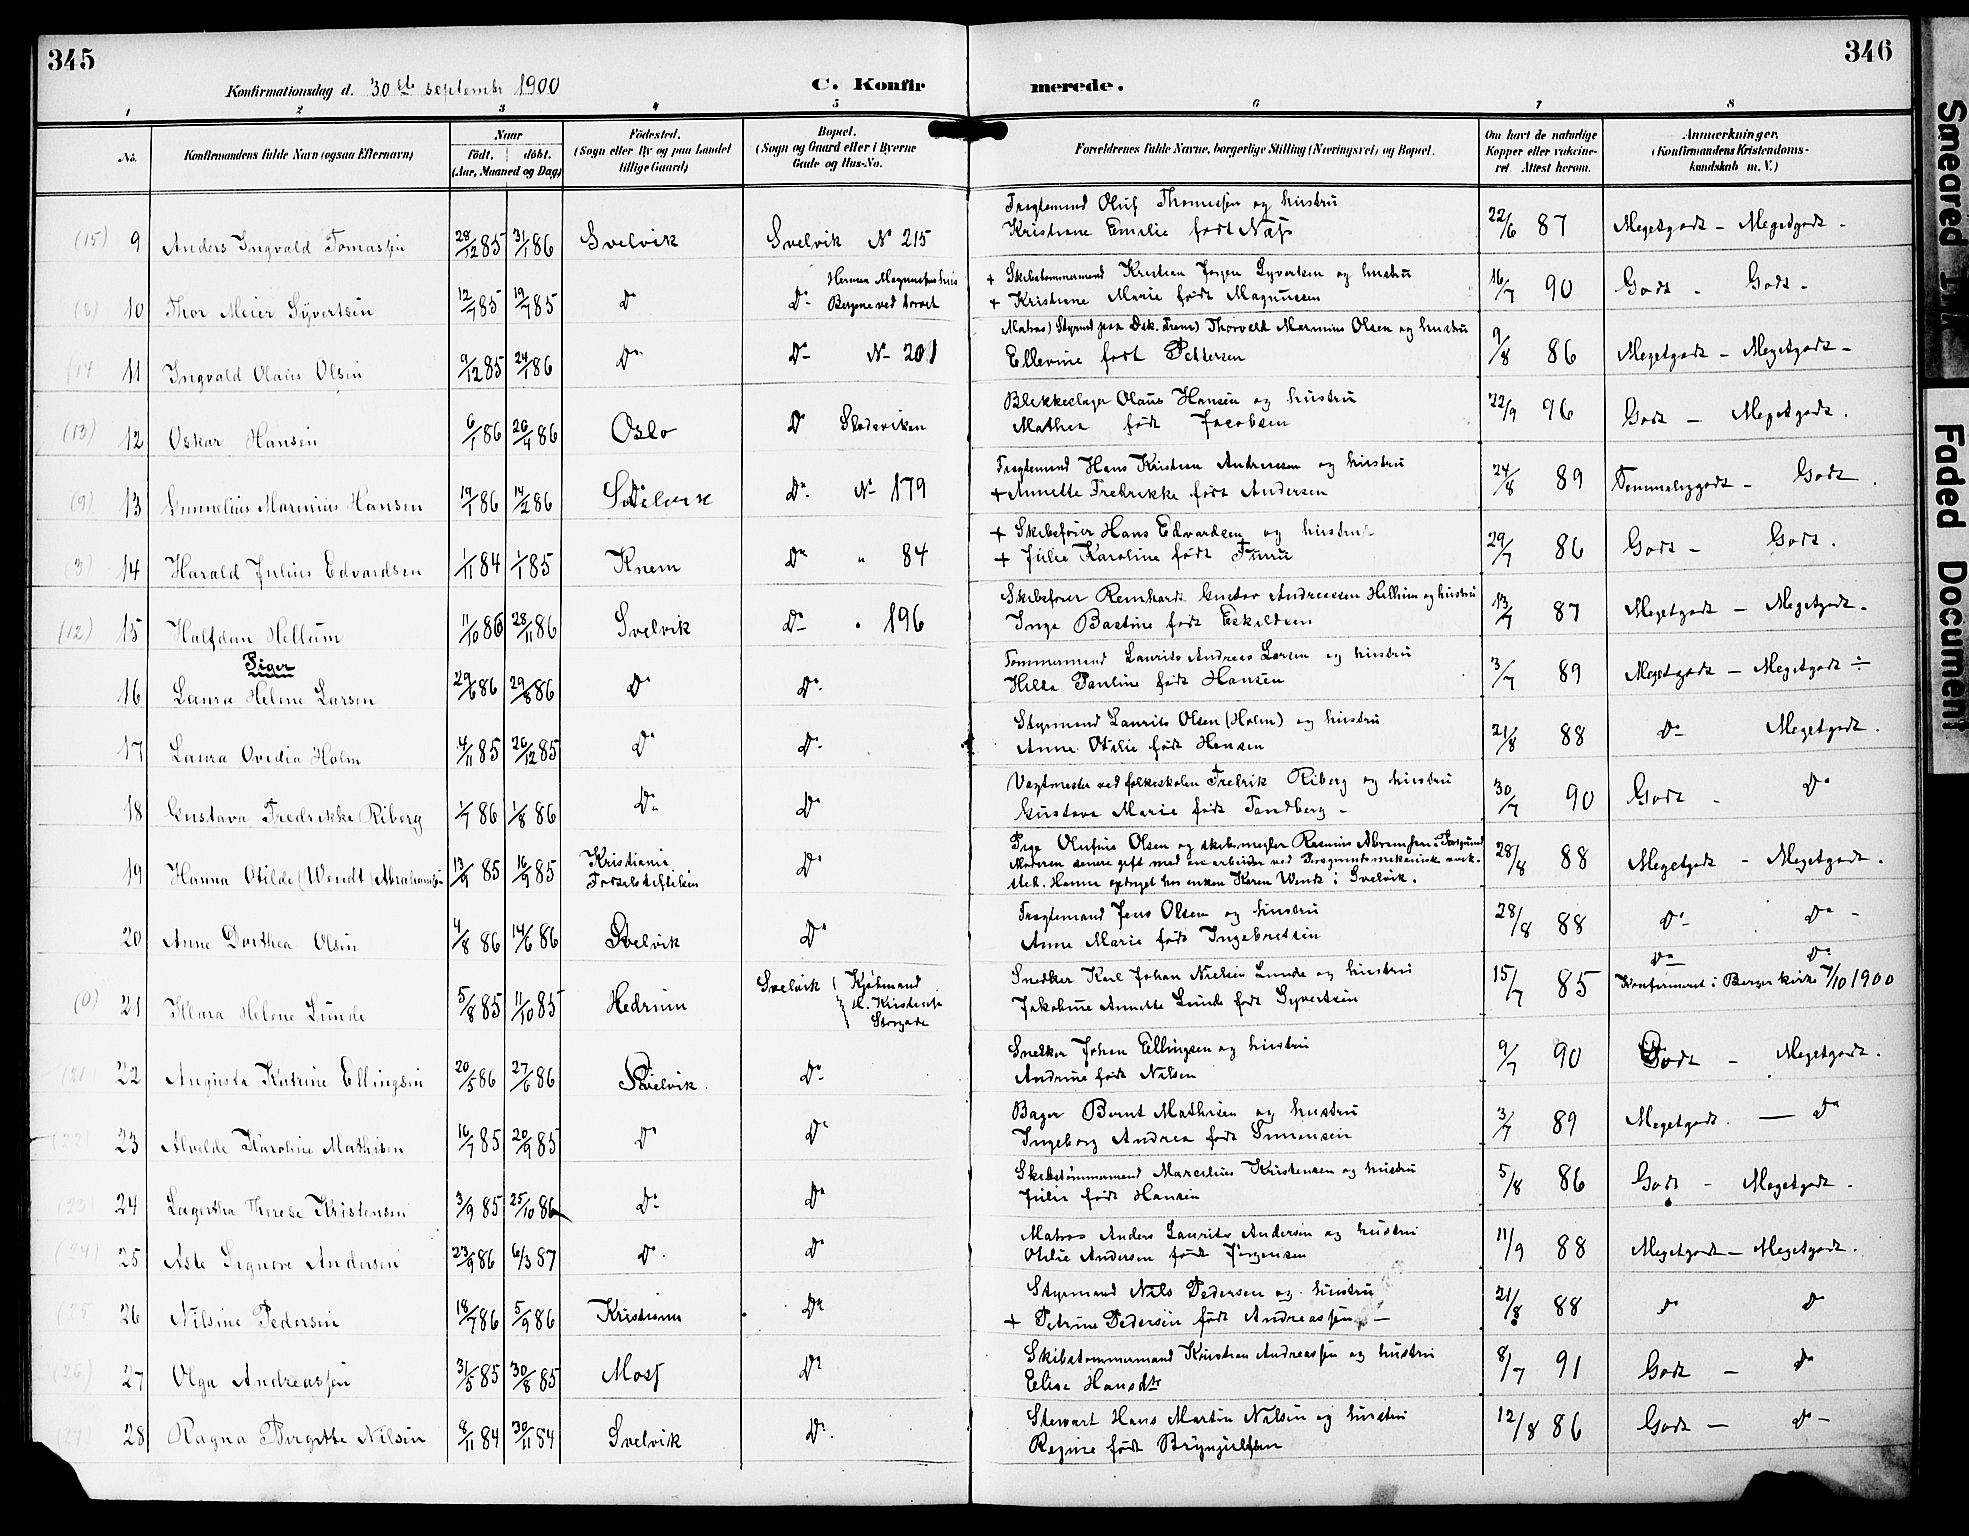 345
346
Konfirmationsdag d. 30te septembr 1900
C. Konfir
merede.
1 2 3 4 5 6 7 8
No. Konfirmandens fulde Navn (ogsaa Efternavn)
Naar
födt. döbt.
(Aar, Maaned og Dag)
Födested.
(Sogn eller By og paa Landet
tillige Gaard)
Bopæl.
(Sogn og Gaard eller i Byerne
Gade og Hus-No.
Forældrenes fulde Navne, borgerlige Stilling (Næringsvei) og Bopæl.
Om havt de naturlige
Kopper eller vakcine-
ret Attest herom.
Anmærkninger.
(Konfirmandens Kristendoms-
kundskab m. V.)
(15) 9 Anders Ingvald Tomassen 28/12 85 31/1 86 Svelvik Svelvik No 215
Fragtemand Oluf Thomesen og hustru
Kristiane Emilie født Næss 22/6 87 Megetgodt - Megetgodt -
(8) 10 Thor Meier Syvertsen 12/7 85 19/7 85 Do Do Herman Magnussens hus
Bergene ved torvet
+ Skibstømmermand Kristian Jørgen Syvertsen og hustru
+ Kristiane Marie født Magnussen 16/7 90 Godt - Godt -
(14 11 Ingvald Olaus Olsen 9/12 85 24/1 86 Do Do No 201
Matros) Styrmd paa Dsk. Frem) Thorvald Marinius Olsen og hustru
Ellevine født Pettersen 9/8 86 Megetgodt - Megetgodt -
(13) 12 Oskar Hansen 6/1 86 26/4 86 Oslo Do
Blikkeslager Olaus Hansen og hustru
Mathea født Jacobsen 22/9 96 Godt - Megetgodt.
(9) 13 Gunnelius Marinius Hansen 19/1 86 14/2 86 Svelvik Do No 179
Fragtemand Hans Kristian Andreassen og hustru
+ Annette Fredrikke født Andersen 24/8 89 Temmeliggodt - Godt.
3) 14 Harald Julius Edvardsen 1/11 84 1/1 85 Knem Do " 84
+ Skibsfører Hans Edvardsen og hustru
+ Julie Karoline født Furu 29/7 86 Godt - Godt.
(12) 15 Halfdan Hellum 11/10 86 28/11 86 Svelvik Do " 196
Skibsfører Reinhardt Gustav Andreassen Hellum og hustru
Inga Bastine født Eskildsen 13/7 87 Megetgodt - Megetgodt.
Piger
16 Laura Helene Larsen 29/6 86 29/8 86 Do Do
Tømmermand Laurits Andreas Larsen og hustru
Hilda Pauline født Hansen 3/7 89 Megetgodt - Megetgodt
17 Laura Ovidia Holm 4/11 85 26/12 85 Do Do
Styrmand Laurits Olsen (Holm) og hustru
Anne Otilie født Hansen 21/8 88 Do Megetgodt.
18 Gustava Fredrikke Riberg 1/7 86 1/8 86 Do Do
Vagtmester ved folkeskolen Fredrik Riberg og hustru
Gustava Marie født Tandberg - 30/7 90 Godt - Do
19 Hanna Otilde (Wendt) Abrahamsen 13/9 85 16/9 85 Kristiania
Fødselsstiftelsen Do
Pige Olufine Olsen og skibsmegler Rasmus Abramsen i Porsgrund
Moderen senere gift med en arbeider ved Porsgrunds mekaniske verk-
sted. Hanna optaget hos enken Karen Wendt i Svelvik. 28/8 88 Megetgodt - Megetgodt.
20 Anne Dorthea Olsen 4/8 86 14/6 86 Svelvik Do
Fragtemand Jens Olsen og hustru
Anne Marie født Ingebretsen 28/8 88 Do Do -
(0) 21 Klara Helene Lunde 5/8 85 11/10 85 Hedrum Svelvik (Kjøbmand
H. Kirstensen
Storgade
Snedker Karl Johan Nielsen Lunde og hustru
Jakobine Annette Lunde født Syvertsen 15/7 85 Do Do
Konfirmeret i Berger kirke 7/10 1900
(21) 22 Augusta Katrine Ellingsen 20/5 86 27/6 86 Svelvik. Do
Snedker Johan Ellingsen og hustru
Andrine født Nilsen 9/7 90 Godt - Megetgodt.
(22) 23 Alvilde Karoline Mathisen 16/7 85 20/9 85 Do Do
Bager Bernt Mathisen og hustru
Ingeborg Andrea født Simensen 3/7 89 Megetgodt. - Do
(23) 24 Lagertha Therese Kristensen 3/9 85 25/10 86 Do Do
Skibstømmermand Marcelius Kristensen og hustru
Julie født Hansen 5/8 86 Godt - Megetgodt.
(24) 25 Aste Signore Andersen 23/9 86 6/3 87 Do Do
Matros Anders Lauritz Andersen og hustru
Otilie Andersen født Jørgensen 11/9 88 Megetgodt - Megetgodt.
(25 26 Nilsine Pedersen 18/7 86 5/9 86 Kristiania Do
Styrmand Nils Pedersen og hustru
+ Petrine Pedersen født Andreassen - 21/8 88 Do Do
(26) 27 Olga Andreassen 31/5 85 30/8 85 Moss Do
Skibstømmermand Kristian Andreassen og hustru
Elise Hansdtr 8/7 91 Godt - Do
(27) 28 Ragna Birgitte Nilsen 8/11 84 30/11 84 Svelvik Do
Stewart Hans Martin Nilsen og hustru
Regine født Brynjulfsen 12/8 86 Godt - Do -
Smeared
Faded Document